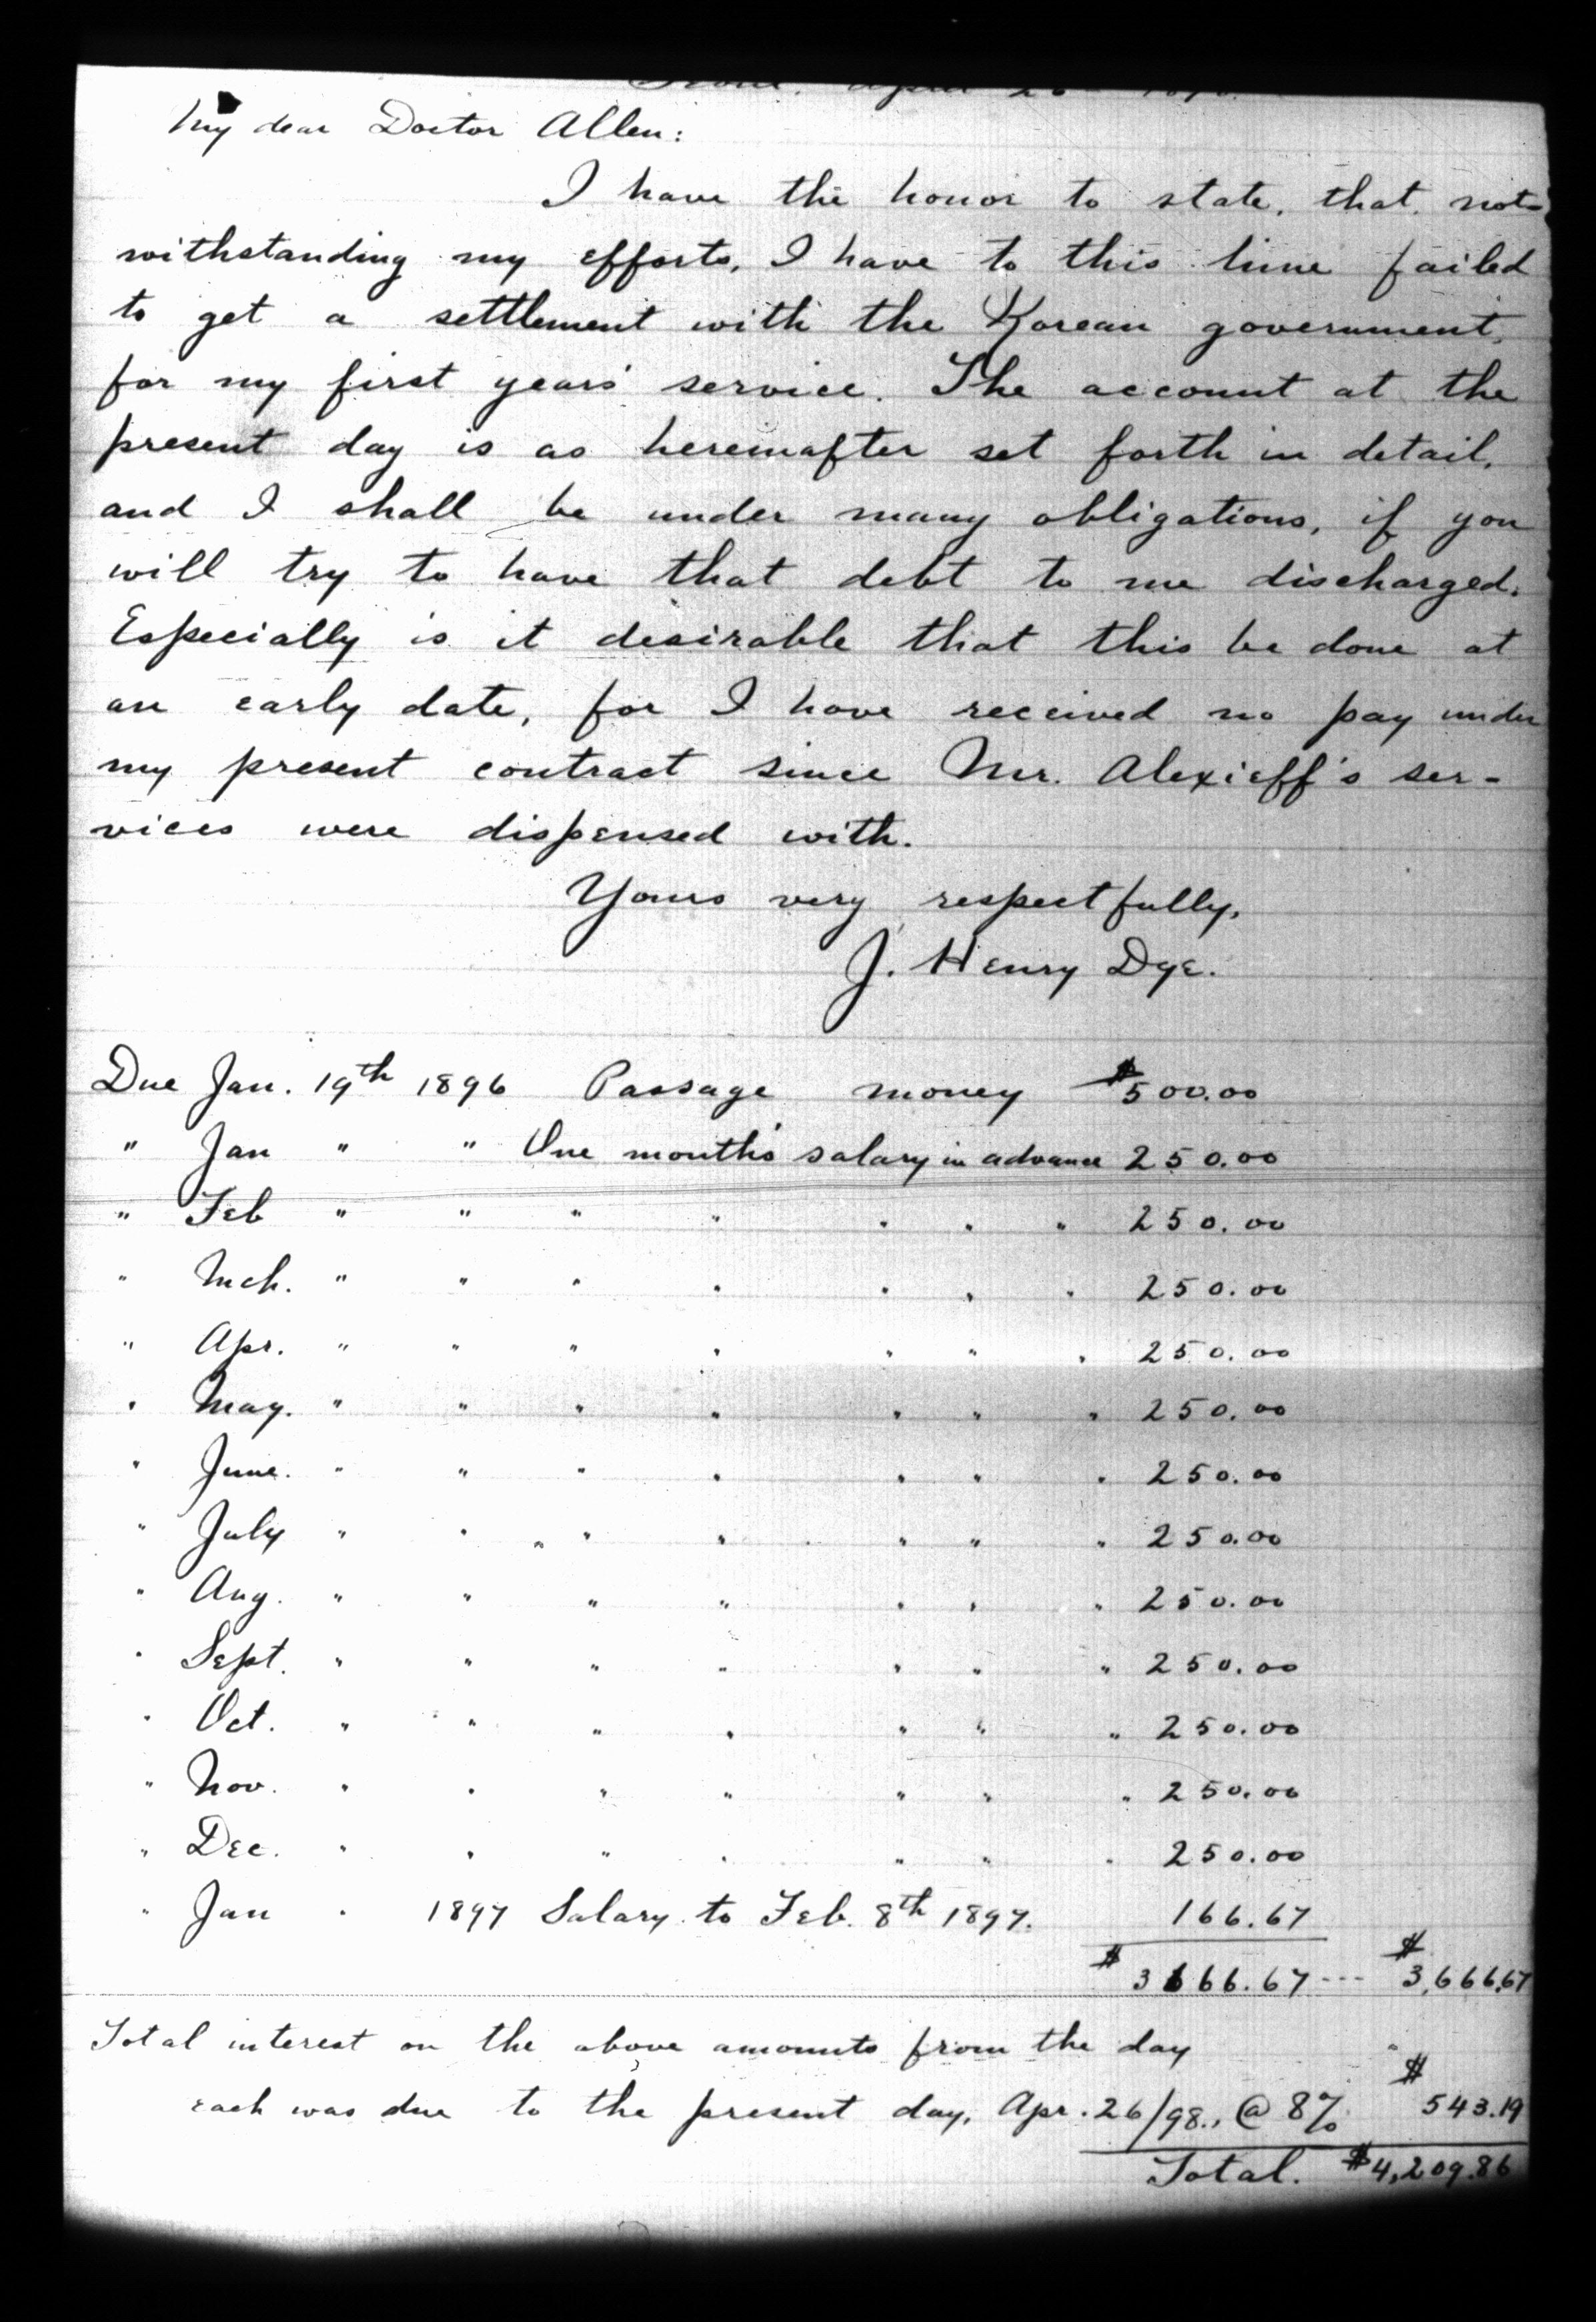 April 26
My dear Doctor Allen:
I have the honor to state, that, not-
withstanding my efforts, I have to this time failed
to get a settlement with the Korean government,
for my first years' service. The account at the
present day is as hereinafter set forth in detail,
and I shall be under many obligations, if you
will try to have that debt to me discharged.
Especially is it desirable that this be done at
an early date, for I have received no pay under
my present contract since Mr. Alexieff's ser-
vices were dispensed with.
Yours very respectfully,
J. Henry Dye.
Due Jan. 19th 1896 Passage money $500.00
" Jan " " One month's salary in advance 250.00
" Feb " " " " " " " 250.00
" Mch. " " " " " " " 250.00
" Apr. " " " " " " " 250.00
" May. " " " " " " " 250.00
" June. " " " " " " " 250.00
" July " " " " " " " 250.00
" Aug. " " " " " " " 250.00
" Sept. " " " " " " " 250.00
" Oct. " " " " " " " 250.00
" Nov. " " " " " " " 250.00
" Dec. " " " " " " " 250.00
" Jan " 1897 Salary to Feb. 8th 1897. 166.67
$3666.67 --- $3,666.67
Total interest on the above amounts from the day
each was due to the present day, Apr. 26/98., @ 8% $543.19
Total. $4,209.86